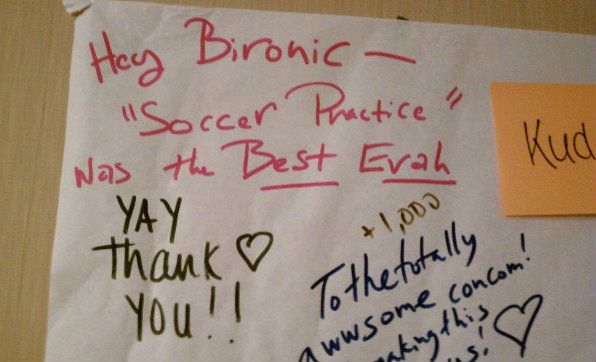 Hey Bironic —
"Soccer Practice"
was the Best Evah
Kud
YAY
Thank ♡
YOU!!
+1,000
To the totally
awwsome concom!
making this
us!